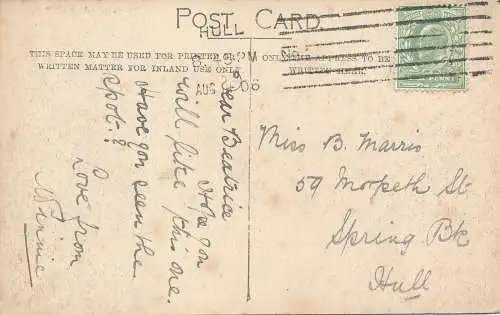 POST CARD
HULL
THIS SPACE MAY BE USED FOR PRINTED OR
WRITTEN MATTER FOR INLAND USE ONLY
ONLY THE ADDRESS TO BE
WRITTEN HERE.
PM
AUG 06
PENNY
Dear Beatrice
Hope you
will like this one.
Have you seen the
spot?
Love from
Winnie
Miss B. Marris
59 Morpeth St
Spring Bk
Hull